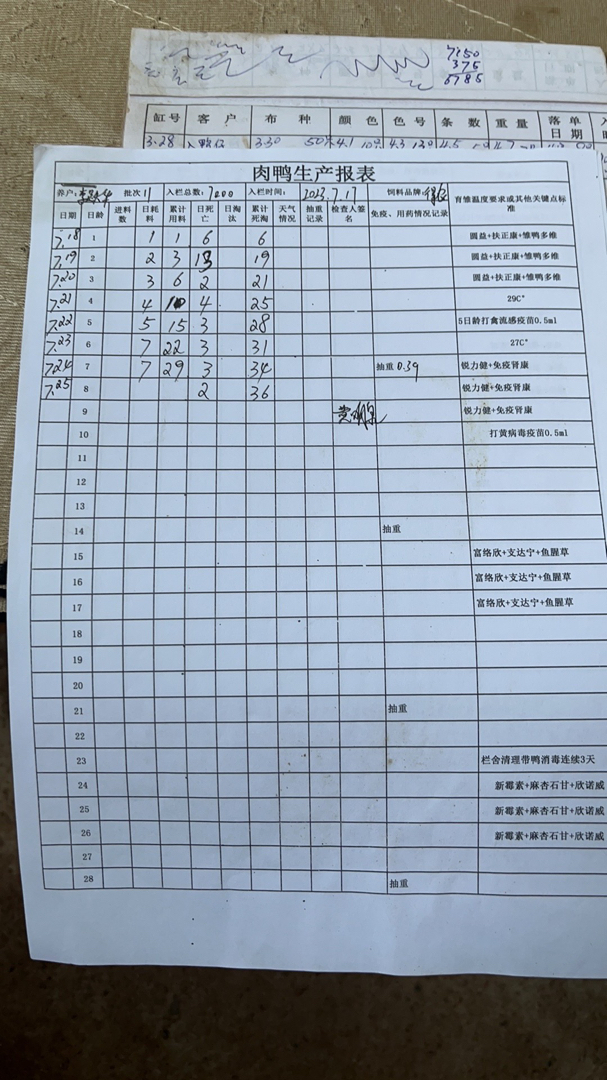 7.50
375
6785
缸号 客户 布种 颜色 色号 条数 重量 落单日期
3.28 3.30
肉鸭生产报表
养户: 批次11 入栏总数:7000 入栏时间: 2023.7.17 饲料品牌: 育雏温度要求或其他关键点标准
日期 日龄 进料数 日耗料 累计用料 日死亡 日淘汰 累计死淘 天气情况 抽重记录 检查人签名 免疫、用药情况记录
7.18 1 1 1 6 6 圆益+扶正康+雏鸭多维
7.19 2 2 3 13 19 圆益+扶正康+雏鸭多维
7.20 3 3 6 2 21 圆益+扶正康+雏鸭多维
7.21 4 4 10 4 25 29C°
7.22 5 5 15 3 28 5日龄打禽流感疫苗0.5ml
7.23 6 7 22 3 31 27C°
7.24 7 7 29 3 34 抽重 0.39 锐力健+免疫肾康
7.25 8 2 36 锐力健+免疫肾康
9 锐力健+免疫肾康
10 打黄病毒疫苗0.5ml
11
12
13
14 抽重
15 富络欣+支达宁+鱼腥草
16 富络欣+支达宁+鱼腥草
17 富络欣+支达宁+鱼腥草
18
19
20
21 抽重
22
23 栏舍清理带鸭消毒连续3天
24 新霉素+麻杏石甘+欣诺威
25 新霉素+麻杏石甘+欣诺威
26 新霉素+麻杏石甘+欣诺威
27
28 抽重